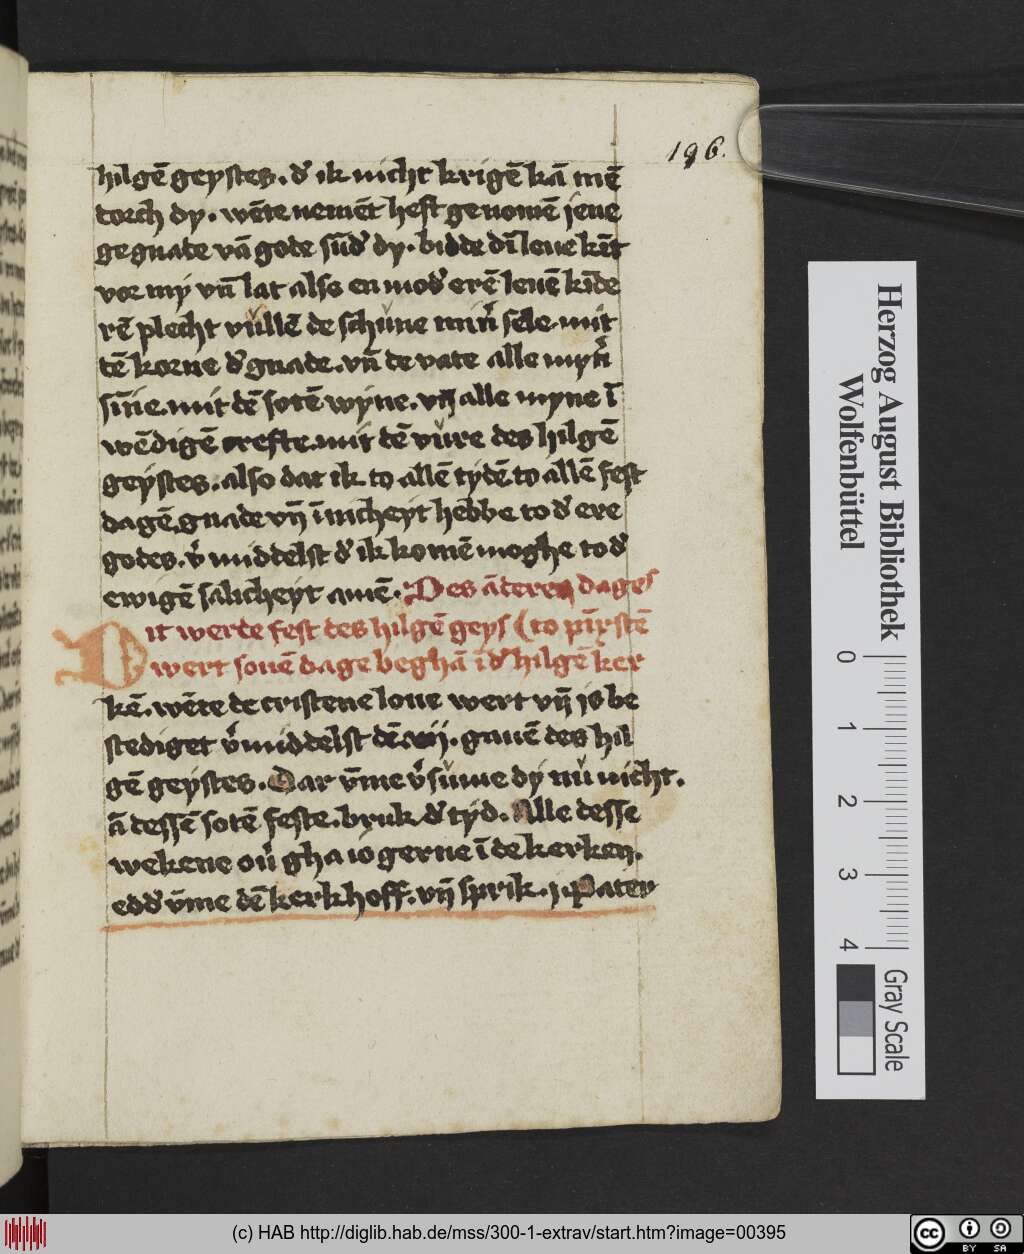 196.
hilgē geystes. d' ik nicht krigē kā mē
dorch dy. wēte nemēt heft genomē jene
gegnade vā gode sūd' dy. bidde dī leue kīt
vor my vn̄ lat alse en mod' erē leuē kīde
rē plecht vŭllē de schŭne mīn' sele. mit
dē korne d' gnade. vn̄ de vate alle myn'
sīne. mit dē sotē wyne. vn̄ alle myne ī
wēdigē crefte. mit dē vŭre des hilgē
geystes. also dat ik to allē tydē. to allē fest
dagē. gnade vn̄ īnicheyt hebbe to d' ere
godes. v' middelst d' ik komē moghe to d'
ewigē salicheyt amē. Des āderen dages
Dit werde fest des hilgē geys (to pīxstē
wert souē dage beghā ī d' hilgē ker
kē. wēte de cristene loue wert vn̄ is be
stediget v'middelst dē. vij. gauē des hil
gē geystes. Dar v̄me v'sŭme dy nŭ nicht.
ā dessē sotē feste. bruk d' tyd. Alle desse
wekene ou' gha io gerne ī de kerken.
edd' v̄me dē kerkhoff. vn̄ sprik. j. Pater
Herzog August Bibliothek
Wolfenbüttel
0 1 2 3 4
Gray Scale
(c) HAB http://diglib.hab.de/mss/300-1-extrav/start.htm?image=00395
cc BY SA